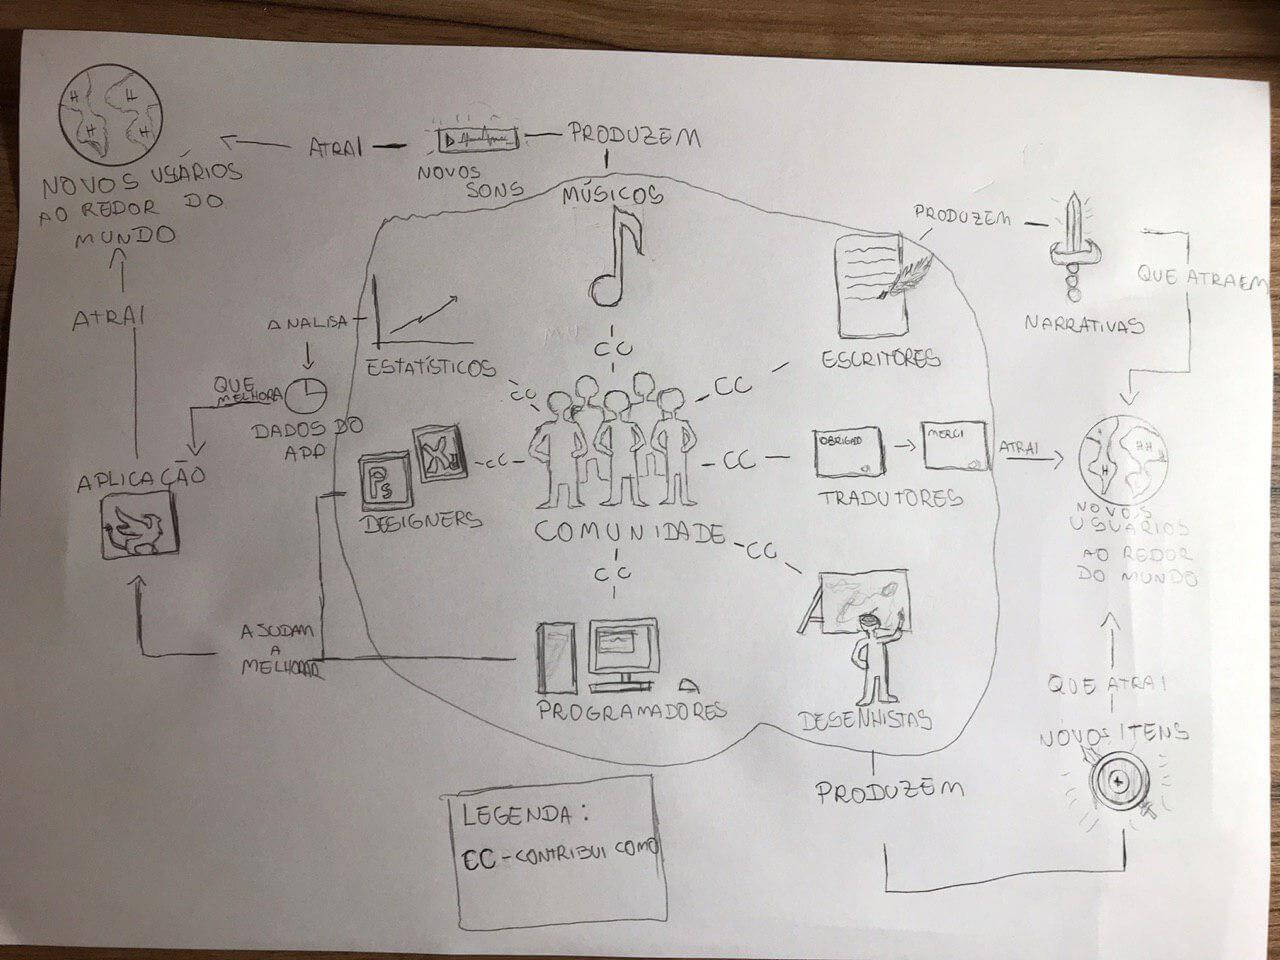 H H
H H
NOVOS USÁRIOS
AO REDOR DO
MUNDO
ATRAI
NOVOS
SONS
PRODUZEM
MÚSICOS
PRODUZEM
NARRATIVAS
QUE ATRAEM
ESCRITORES
ATRAI
ANALISA
ESTATÍSTICOS
QUE
MELHORA
DADOS DO
APP
APLICAÇÃO
CC
CC
CC
Ps
DESIGNERS
CC
CC
OBRIGADO
MERCI
TRADUTORES
ATRAI
H
HH
NOVOS
USUÁRIOS
AO REDOR
DO MUNDO
COMUNIDADE
CC
CC
AJUDAM
A
MELHORAR
PROGRAMADORES
DESENHISTAS
QUE ATRAI
NOVOS ITENS
PRODUZEM
LEGENDA:
CC - CONTRIBUI COMO